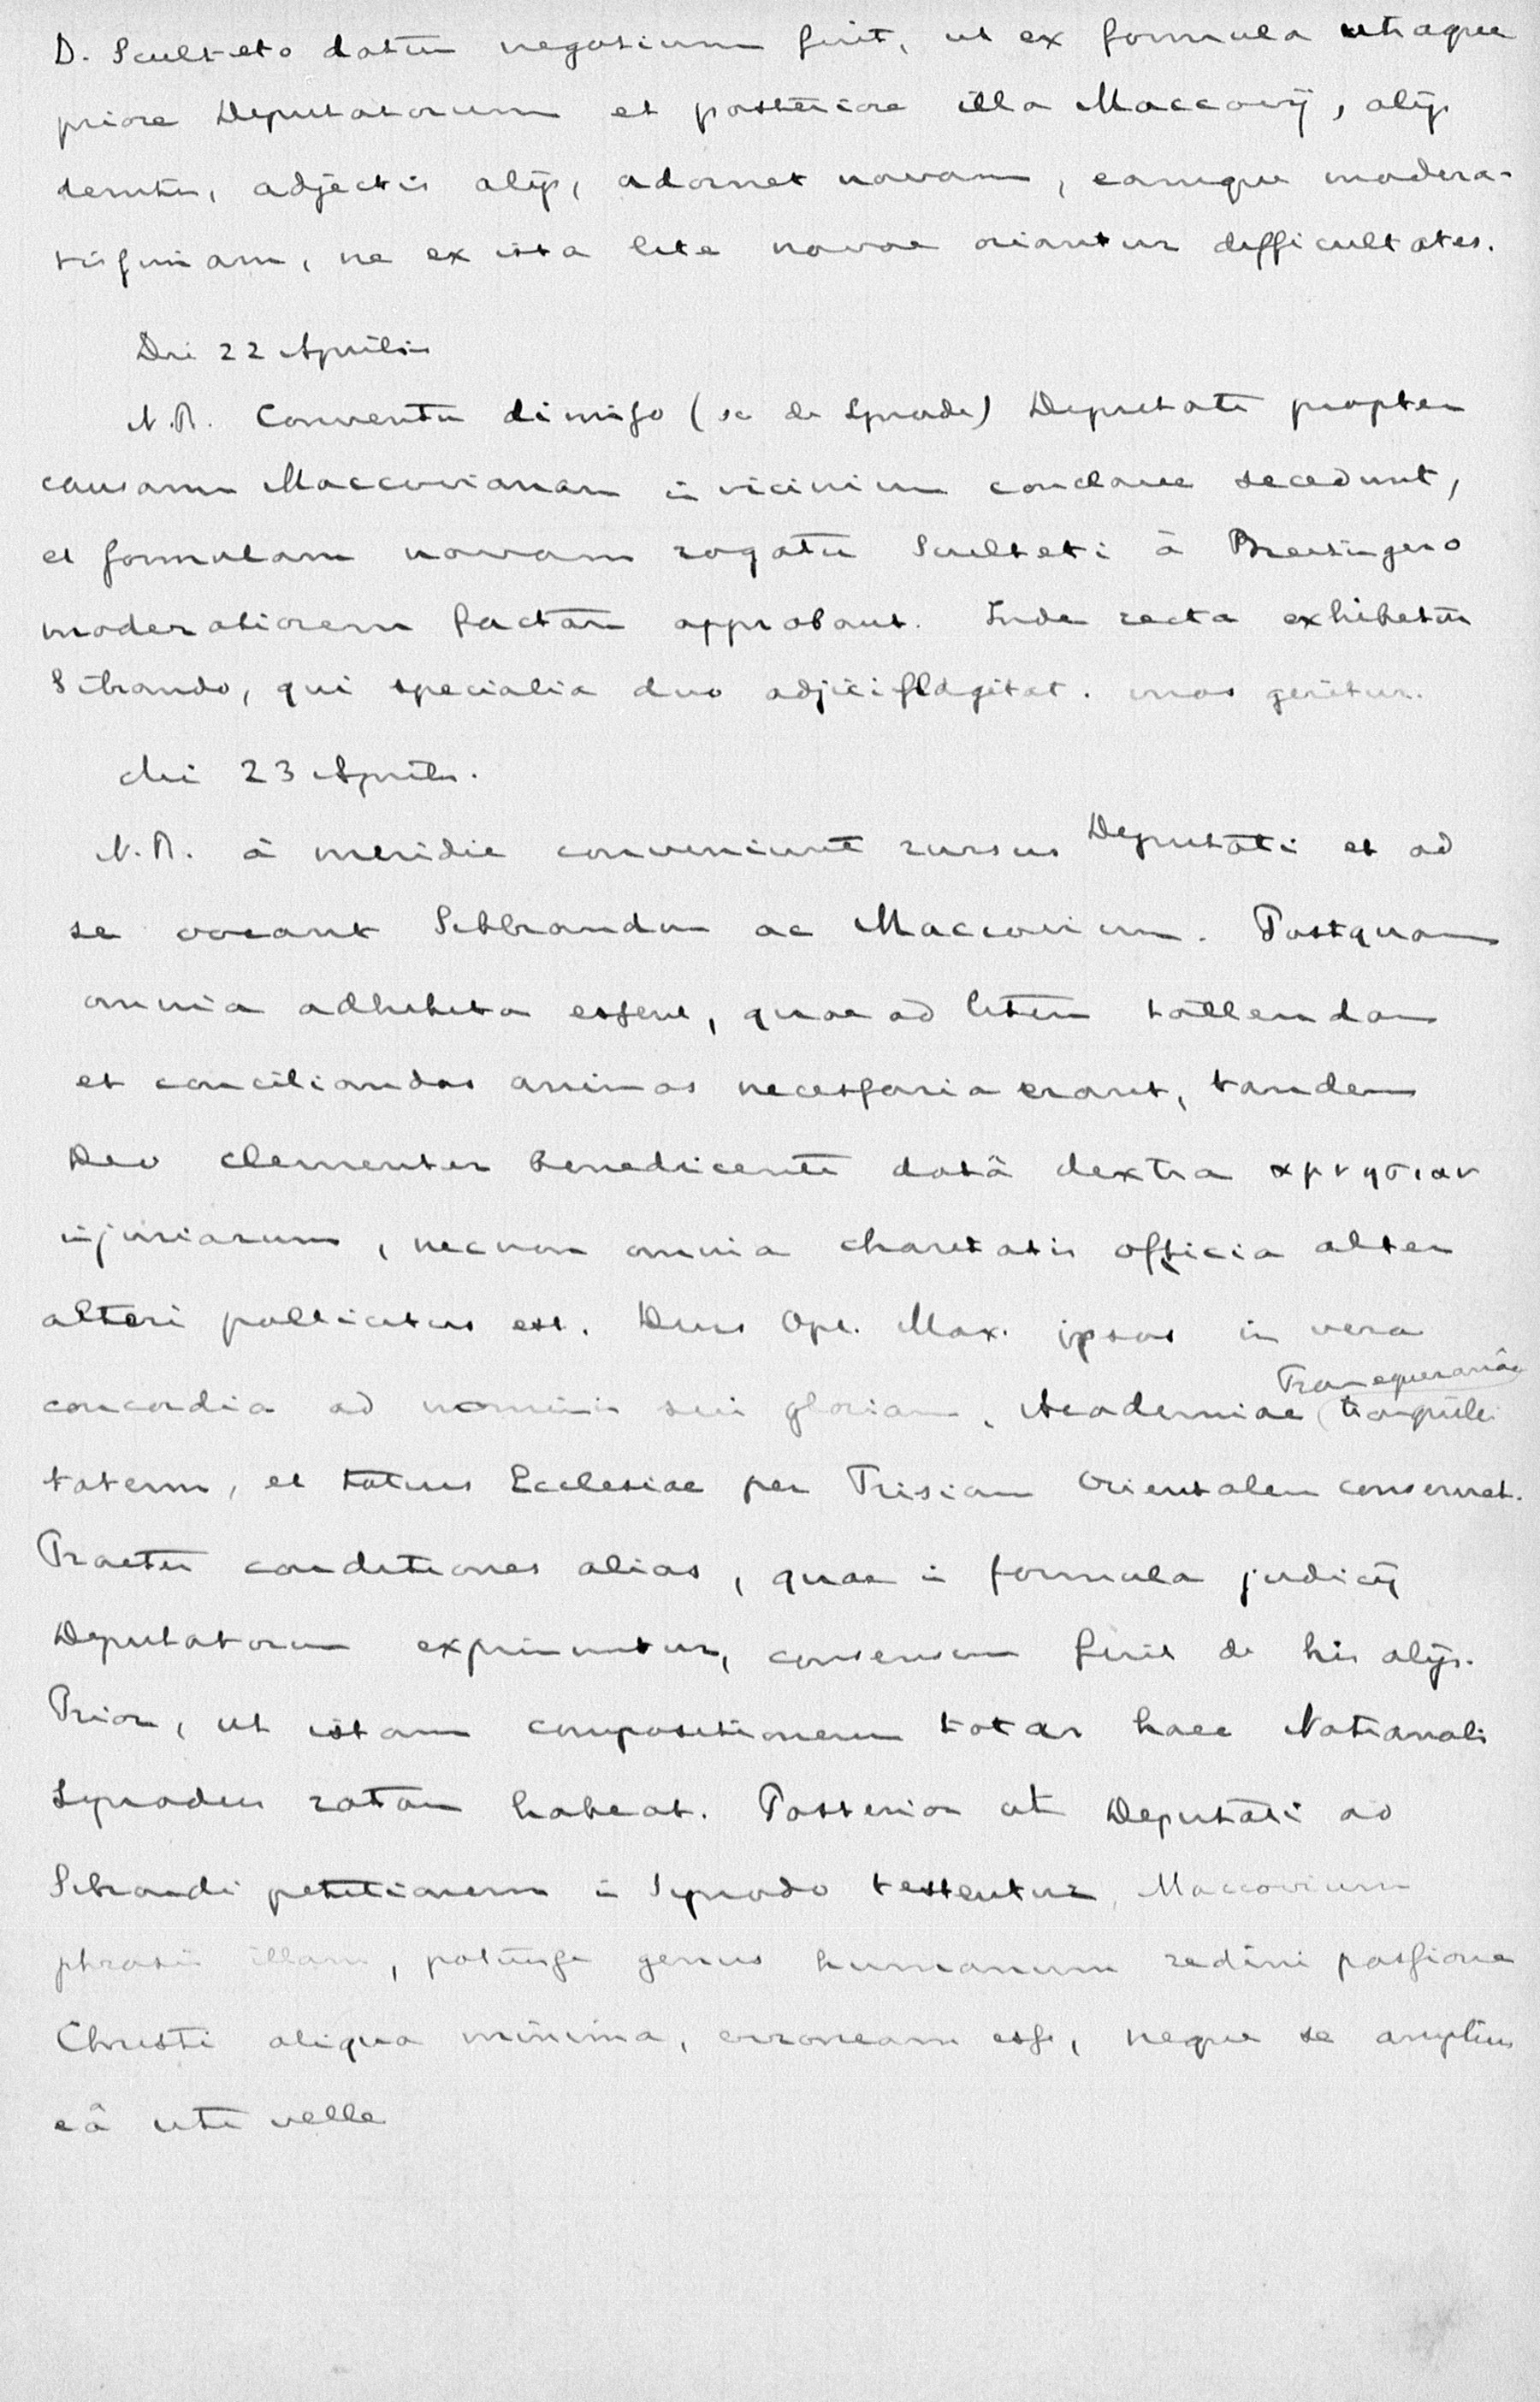 D. Sculteto datum negotium fuit, ut ex formula utraque
priore Deputatorum et posteriore illa Maccovij, alijs
demtis, adjectis alijs, adornet novam, eamque modera-
tissimam, ne ex ista lite novae oriantur difficultates.
Die 22 Aprilis
N.B. Conventu dimisso (sc de Synode) Deputati propter
causam Maccovianam in vicinium conclave secedunt,
et formulam novam rogatu Sculteti à Breitingero
moderatiorem factam approbant. Inde recta exhibetur
Sibrando, qui specialia duo adjici flagitat. mos geritur.
die 23 Aprilis.
N.B. à meridie conveniunt rursus Deputati et ad
se vocant Sibbrandum ac Maccovium. Postquam
omnia adhibita essent, quae ad litem tollendam
et conciliandos animos necessaria erant, tandem
Deo clementer benedicente datâ dextra αμνηστιαν
injuriarum, necnon omnia charitatis officia alter
alteri pollicitus est. Deus Opt. Max. ipsos in vera
concordia ad nominis sui gloriam, Academiae (tranquilli
Franequeranae
tatem, et totius Ecclesiae per Frisiam Orientalem conservet.
Praeter conditiones alias, quae in formula judicij
Deputatorum exprimuntur, consensum fuit de his alijs.
Prior, ut istam compositionem totar haec Nationali
Synodus ratam habeat. Posterior ut Deputati ad
Sibrandi petitionem in Synodo testentur, Maccovium
phrasin illam, potuisse genus humanum redimi passione
Christi aliqua minima, erroneam esse, neque se amplius
eâ uti velle